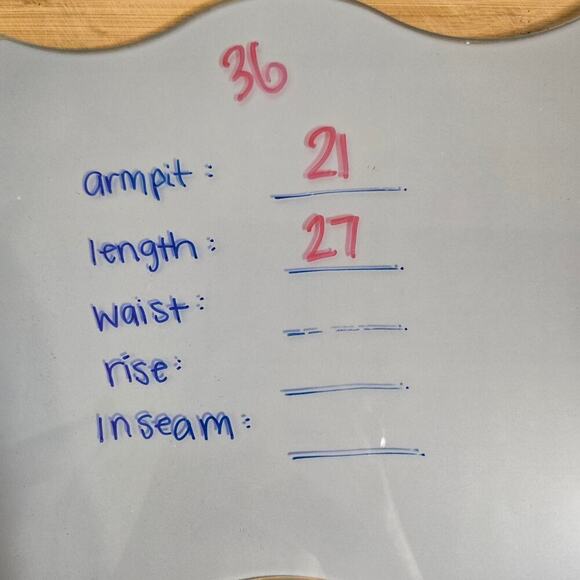 36
armpit: 21
length: 27
waist:
rise:
inseam: